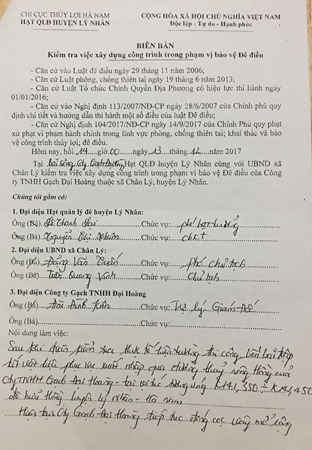 CHI CỤC THỦY LỢI HÀ NAM
HẠT QLĐ HUYỆN LÝ NHÂN
CỘNG HÒA XÃ HỘI CHỦ NGHĨA VIỆT NAM
Độc lập - Tự do - Hạnh phúc
BIÊN BẢN
Kiểm tra việc xây dựng công trình trong phạm vi bảo vệ Đê điều
- Căn cứ vào Luật đê điều ngày 29 tháng 11 năm 2006;
- Căn cứ Luật phòng, chống thiên tai ngày 19 tháng 6 năm 2013;
- Căn cứ Luật Tổ chức Chính Quyền Địa Phương có hiệu lực thi hành ngày
01/01/2016;
- Căn cứ vào Nghị định 113/2007/NĐ-CP ngày 28/6/2007 của Chính phủ quy
định chi tiết và hướng dẫn thi hành một số điều của luật Đê điều;
- Căn cứ vào Nghị định 104/2017/NĐ-CP ngày 14/9/2017 Chính Phủ quy phạt
xử phạt vi phạm hành chính trong lĩnh vực phòng, chống thiên tai; khai thác và bảo
vệ công trình thủy lợi; đê điều.
Hôm nay, hồi 14 giờ 00 ngày 13 tháng 12 năm 2017
Tại Hạt QLĐ huyện Lý Nhân cùng với UBND xã
Chân Lý kiểm tra việc xây dựng công trình trong phạm vi bảo vệ Đê điều của Công
ty TNHH Gạch Đại Hoàng thuộc xã Chân Lý, huyện Lý Nhân.
Chúng tôi gồm có:
1. Đại diện Hạt quản lý đê huyện Lý Nhân:
Ông (Bà) Chức vụ: phó hạt trưởng
Ông (Bà) Nguyễn Chức vụ:
2. Đại diện UBND xã Chân Lý:
Ông (Bà) Chức vụ: phó Chủ tịch
Ông (Bà) Trần Quang Chức vụ: Chủ tịch
3. Đại diện Công ty Gạch TNHH Đại Hoàng
Ông (Bà) Trần Đình Chức vụ: Trợ lý Giám Đốc
Ông (Bà) Chức vụ:
Nội dung làm việc:
Sau khi kiểm tra thực tế hiện trường thi công
cty TNHH Gạch Đại Hoàng - tại vị trí tương ứng K141,350 - K141,450
đê hữu Hồng huyện Lý Nhân - Hà Nam